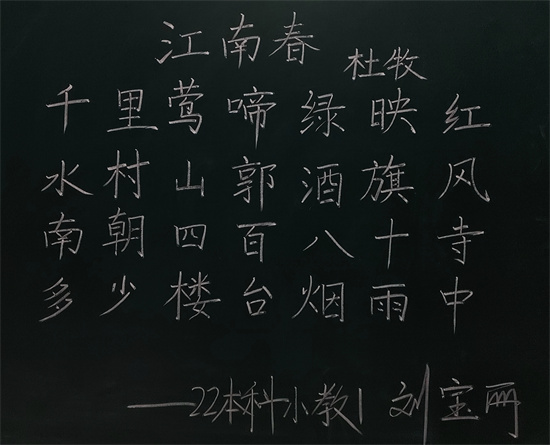 江南春
杜牧
千里莺啼绿映红
水村山郭酒旗风
南朝四百八十寺
多少楼台烟雨中
——22本科小教1 刘宝丽